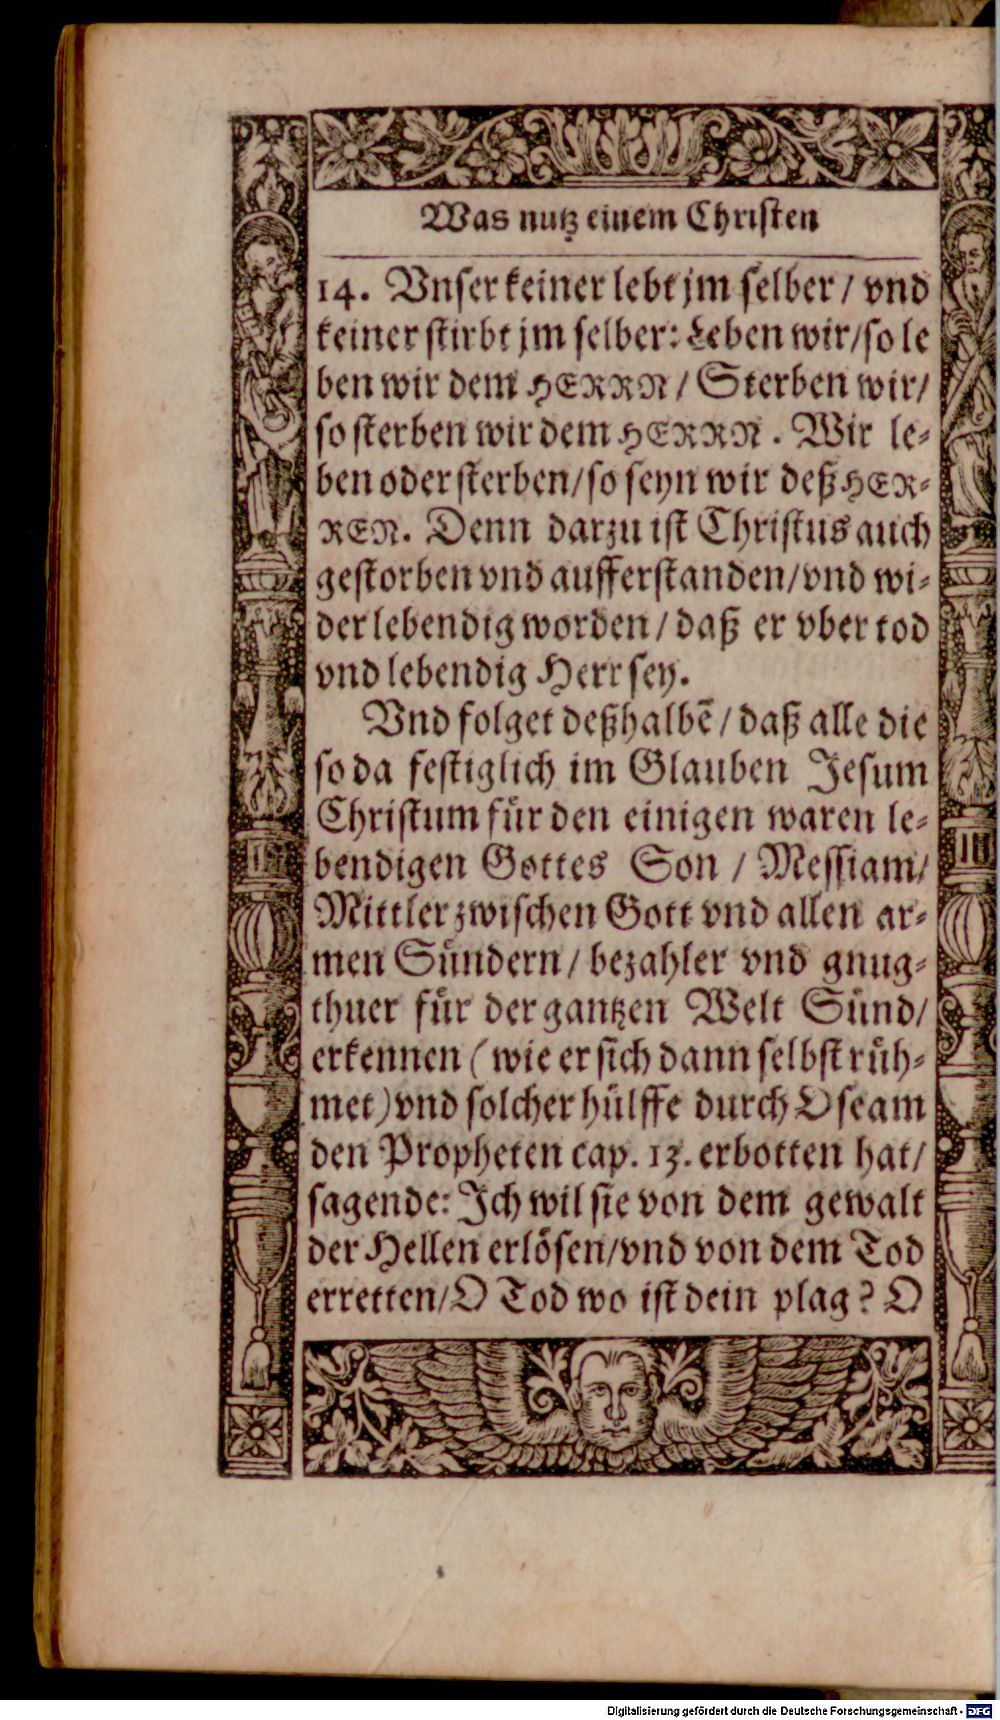 Was nutz einem Christen
14. Vnser keiner lebt jm selber / vnd
keiner stirbt jm selber: Leben wir/so le
ben wir dem HERRN / Sterben wir/
so sterben wir dem HERRN. Wir le⸗
ben oder sterben/so seyn wir deß HER⸗
REN. Denn darzu ist Christus auch
gestorben vnd aufferstanden/vnd wi⸗
der lebendig worden/daß er vber tod
vnd lebendig Herr sey.
Vnd folget deßhalbẽ/daß alle die
so da festiglich im Glauben Jesum
Christum fuͤr den einigen waren le⸗
bendigen Gottes Son / Messiam/
Mittler zwischen Gott vnd allen ar⸗
men Suͤndern/bezahler vnd gnug⸗
thuer fuͤr der gantzen Welt Suͤnd/
erkennen (wie er sich dann selbst ruͤh⸗
met) vnd solcher huͤlffe durch Oseam
den Propheten cap. 13. erbotten hat/
sagende: Jch wil sie von dem gewalt
der Hellen erloͤsen/vnd von dem Tod
erretten/O Tod wo ist dein plag? O
Digitalisierung gefördert durch die Deutsche Forschungsgemeinschaft - DFG